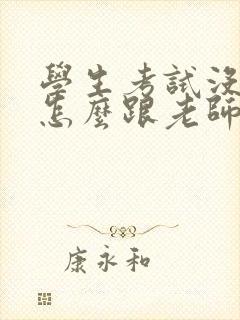 學生考試沒
怎麼跟老師
康永和